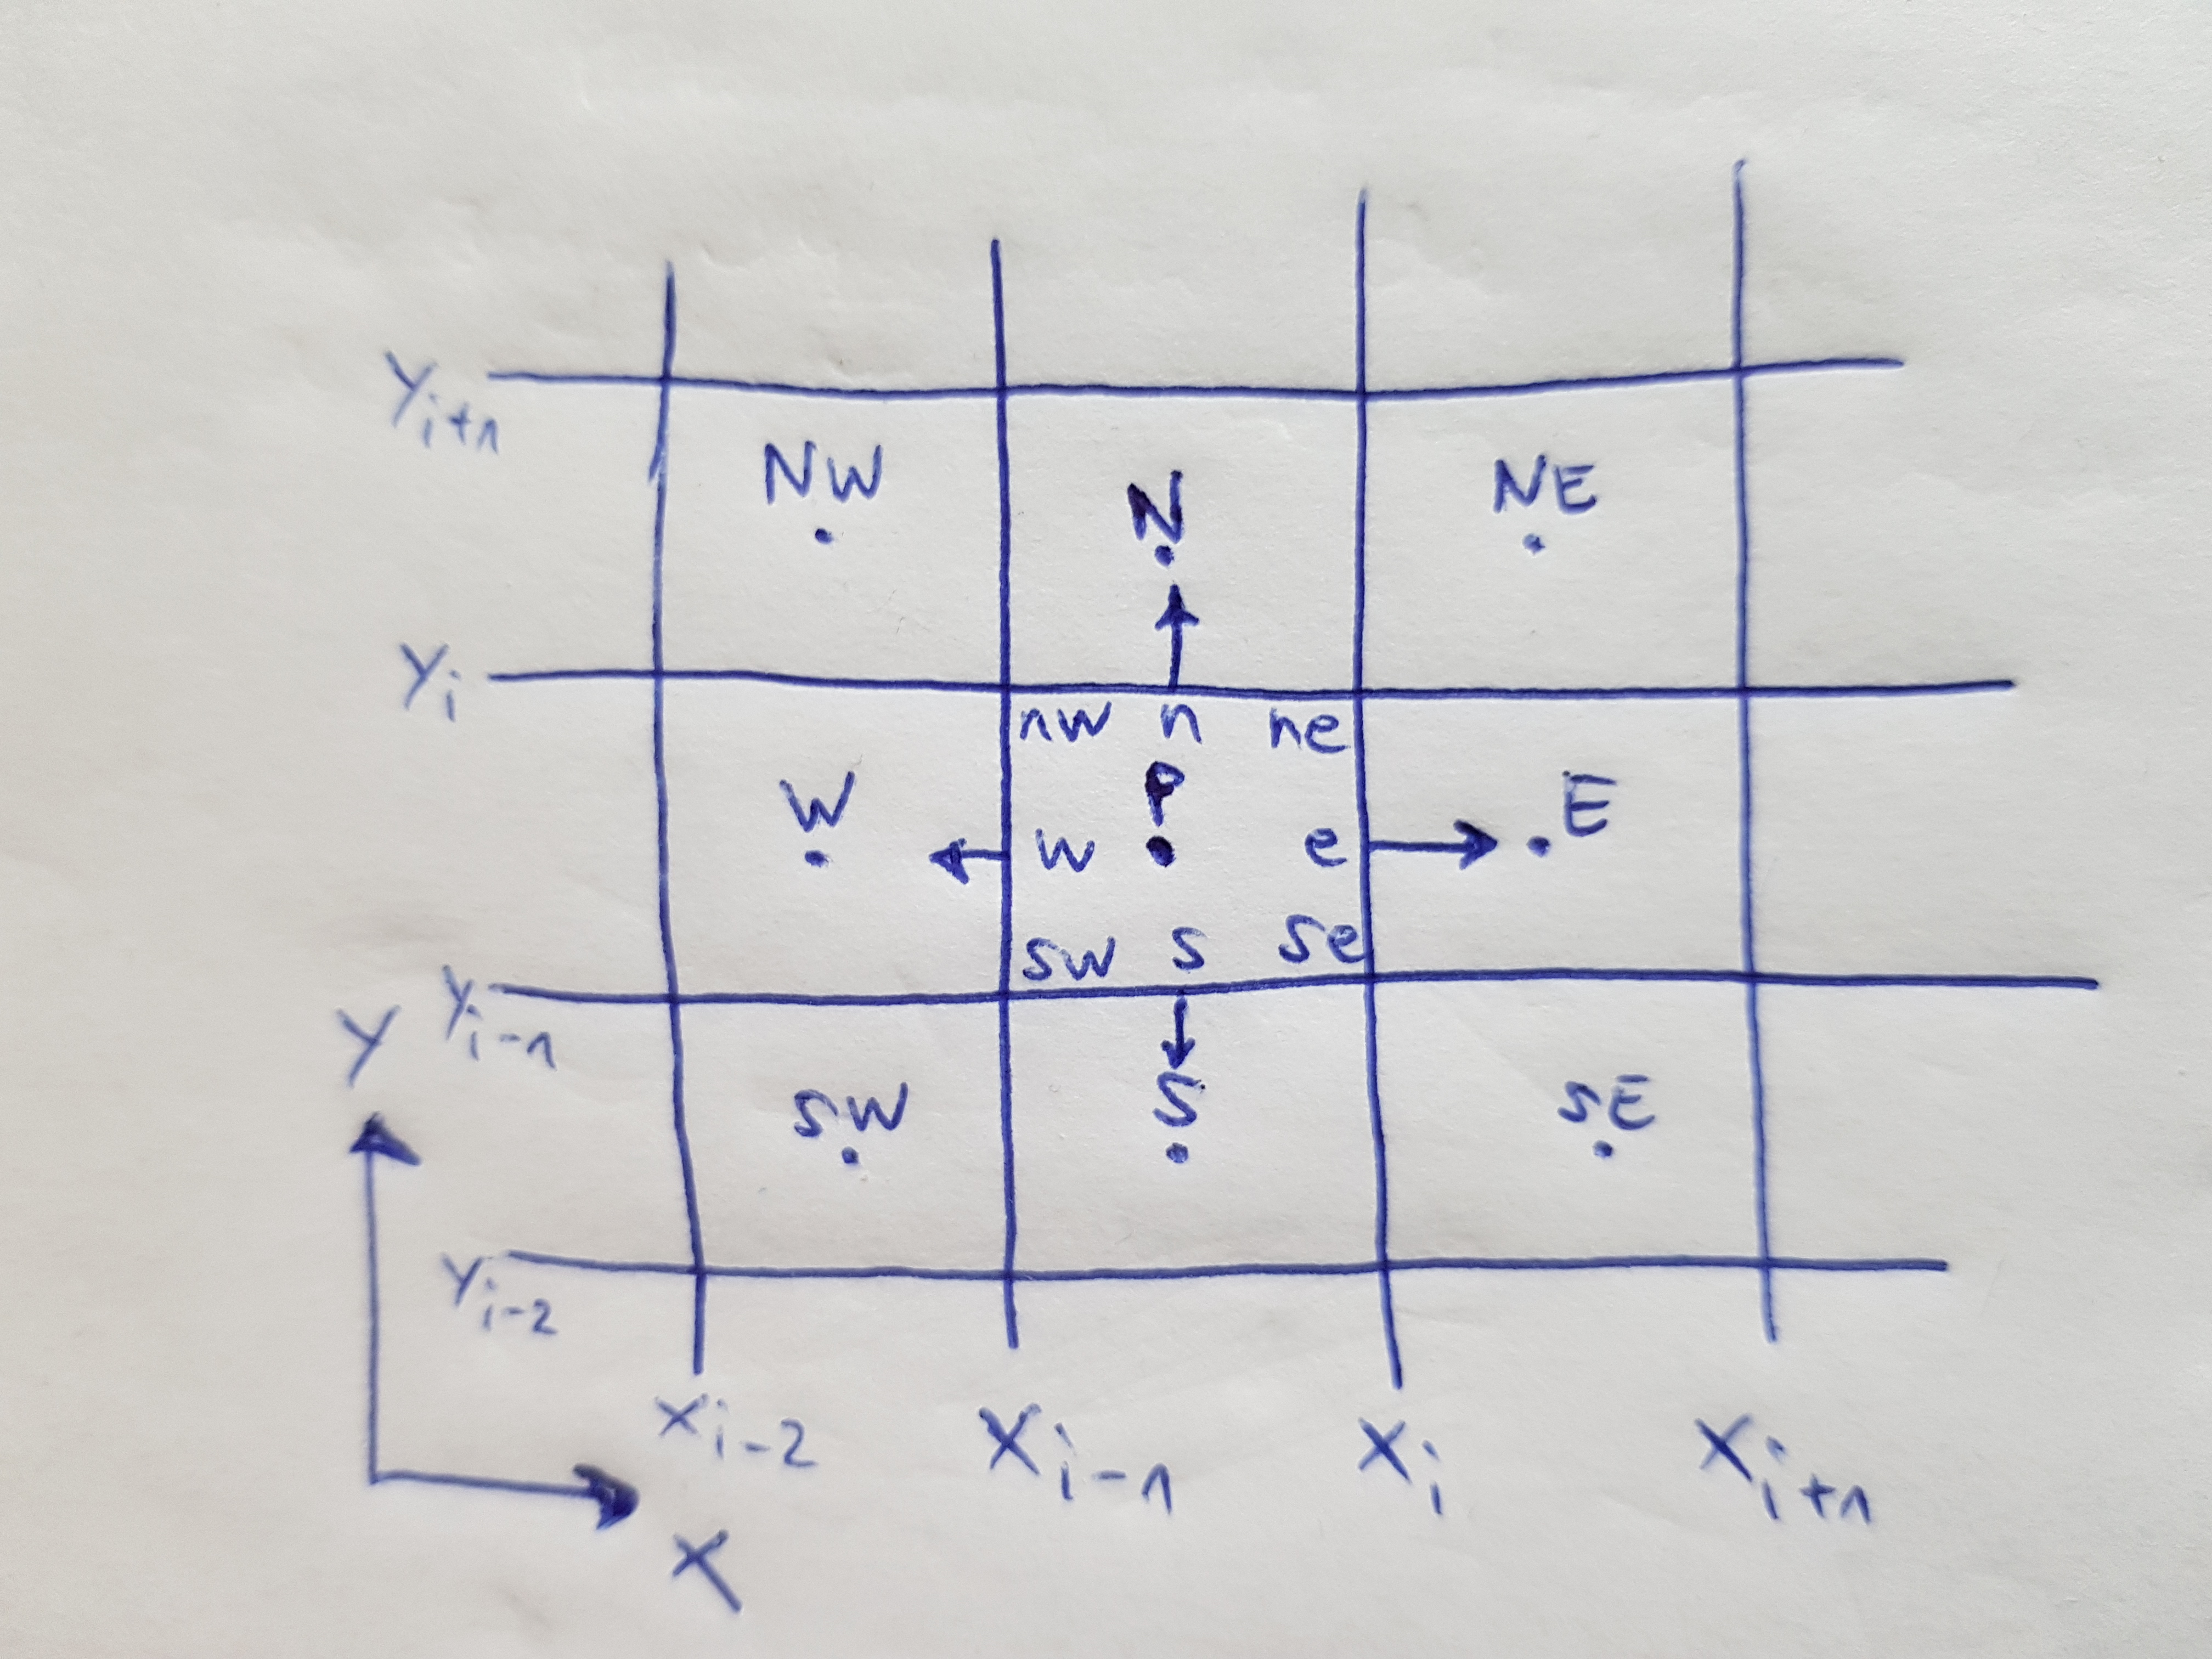 y_{i+1}
NW N NE
y_i
nw n ne
P
W w e E
sw s se
y_{i-1}
Y
SW S SE
y_{i-2}
x_{i-2} x_{i-1} x_i x_{i+1}
X